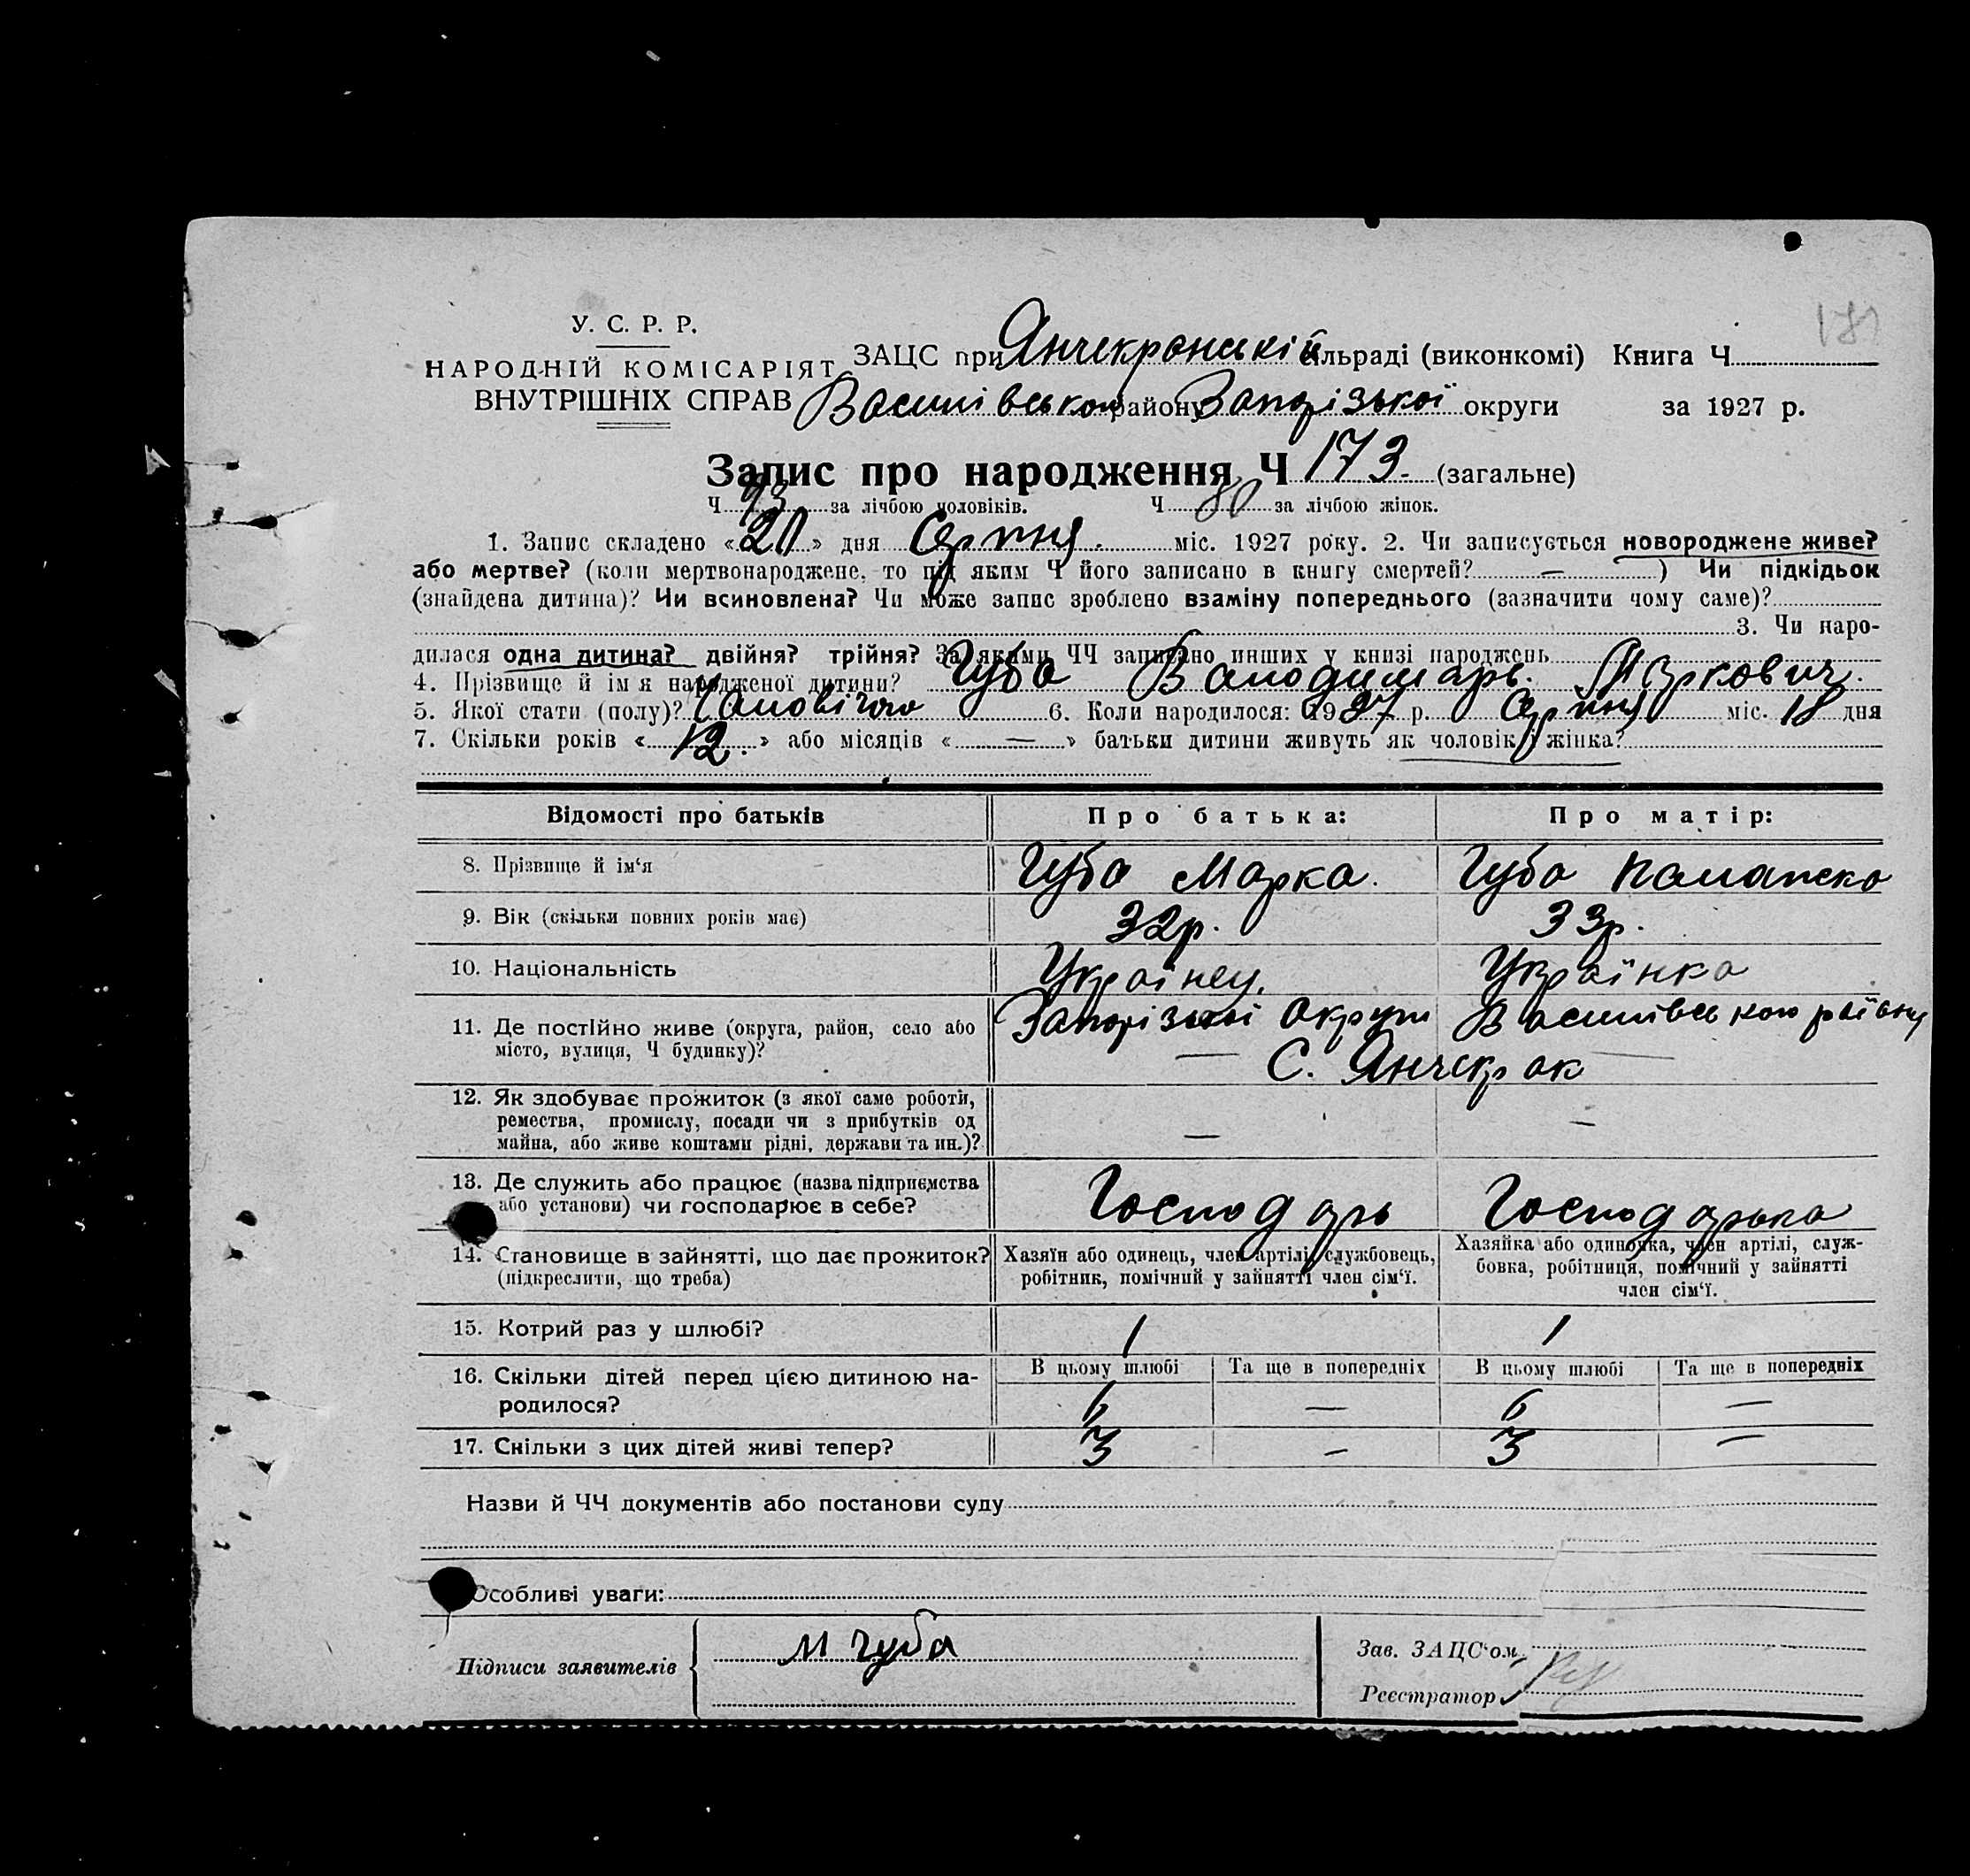 181
У. С. Р. Р.
НАРОДНІЙ КОМІСАРІЯТ
ВНУТРІШНІХ СПРАВ
ЗАЦС при Янчекракській сільраді (виконкомі) Книга Ч
Василівського району Запорізької округи за 1927 р.
Запис про народження Ч 173. (загальне)
Ч 93 за лічбою чоловіків. Ч 80 за лічбою жінок.
1. Запис складено «20» дня Серпня. міс. 1927 року. 2. Чи записується новороджене живе?
або мертве? (коли мертвонароджене, то під яким Ч його записано в книгу смертей? — ) Чи підкідьок
(знайдена дитина)? Чи всиновлена? Чи може запис зроблено взаміну попереднього (зазначити чому саме)?
3. Чи наро-
дилася одна дитина? двійня? трійня? За якими ЧЧ записано инших у книзі народжень
4. Прізвище й ім'я народженої дитини? Губа Володимарь. Маркович.
5. Якої стати (полу)? Чоловічого 6. Коли народилося: 1927 р. Серпня міс. 18 дня
7. Скільки років «12.» або місяців «—» батьки дитини живуть як чоловік і жінка?
Відомості про батьків Про батька: Про матір:
8. Прізвище й ім'я Губа Марко. Губа
9. Вік (скільки повних років має) 32р. 33р.
10. Національність Українец. Українка
11. Де постійно живе (округа, район, село або Запорізької округи Василівського району
місто, вулиця, Ч будинку)? — С. Янчекрак —
12. Як здобуває прожиток (з якої саме роботи,
ремества, промислу, посади чи з прибутків од
майна, або живе коштами рідні, держави та ин.)? — —
13. Де служить або працює (назва підприємства
або установи) чи господарює в себе? Господарь Господарька
14. Становище в зайнятті, що дає прожиток? Хазяїн або одинець, член артілі, службовець, Хазяйка або одиночка, член артілі, служ-
(підкреслити, що треба) робітник, помічний у зайнятті член сім'ї. бовка, робітниця, помічний у зайнятті
член сім'ї.
15. Котрий раз у шлюбі? 1 1
16. Скільки дітей перед цією дитиною на- В цьому шлюбі Та ще в попередніх В цьому шлюбі Та ще в попередніх
родилося? 6 — 6 —
17. Скільки з цих дітей живі тепер? 3 – 3 —
Назви й ЧЧ документів або постанови суду
Особливі уваги:
Підписи заявителів м губа
Зав. ЗАЦС'ом
Реєстратор